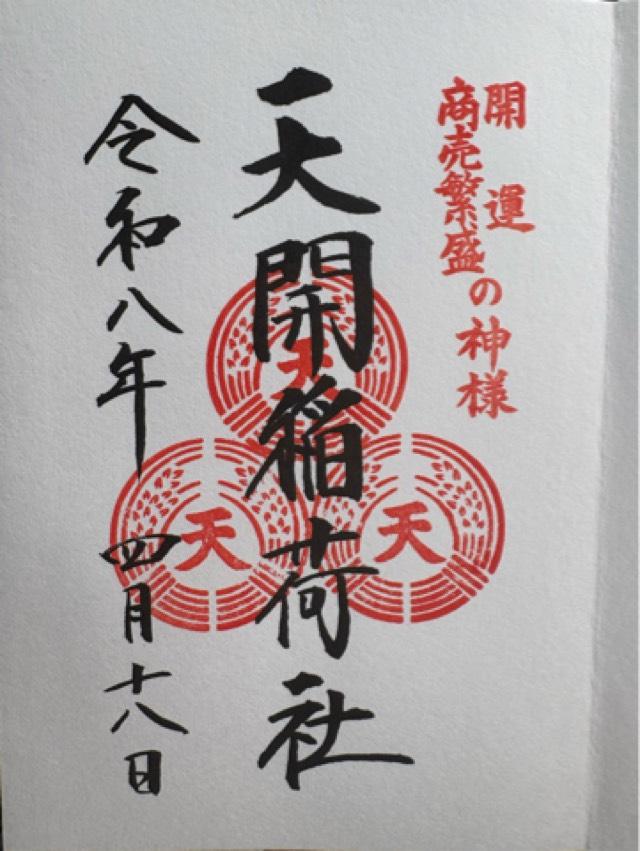 開運
商売繁盛
の神様
天開稲荷社
天
天
天
令和八年 四月十八日